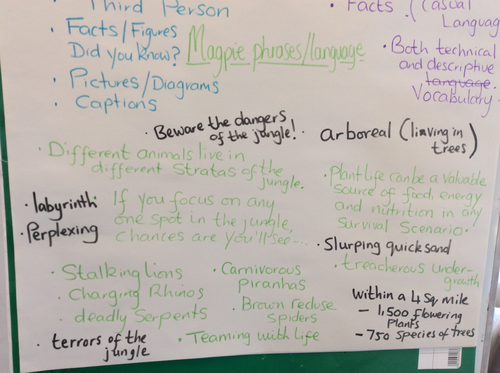 Third Person
• Facts/Figures
Did you know?
• Pictures/Diagrams
• Captions
Magpie phrases/language
• Facts
(Casual
Language
• Both technical
and descriptive
language.
Vocabulary
• Beware the dangers
of the jungle!
• Different animals live in
different Stratas of the
jungle.
arboreal (linving in
trees)
• Plant Life can be a valuable
source of food, energy
and nutrition in any
Survival Scenario.
• labyrinth
• Perplexing
If you focus on any
one spot in the jungle,
chances are you'll see...
• Slurping quicksand
• treacherous under-
growth
• Stalking lions
• Charging Rhinos
• deadly Serpents
• Carnivorous
piranhas
• Brown recluse
spiders
within a 4 Sq. mile
– 1,500 flowering
Plants
– 750 species of trees
• terrors of the
jungle
• Teaming with life